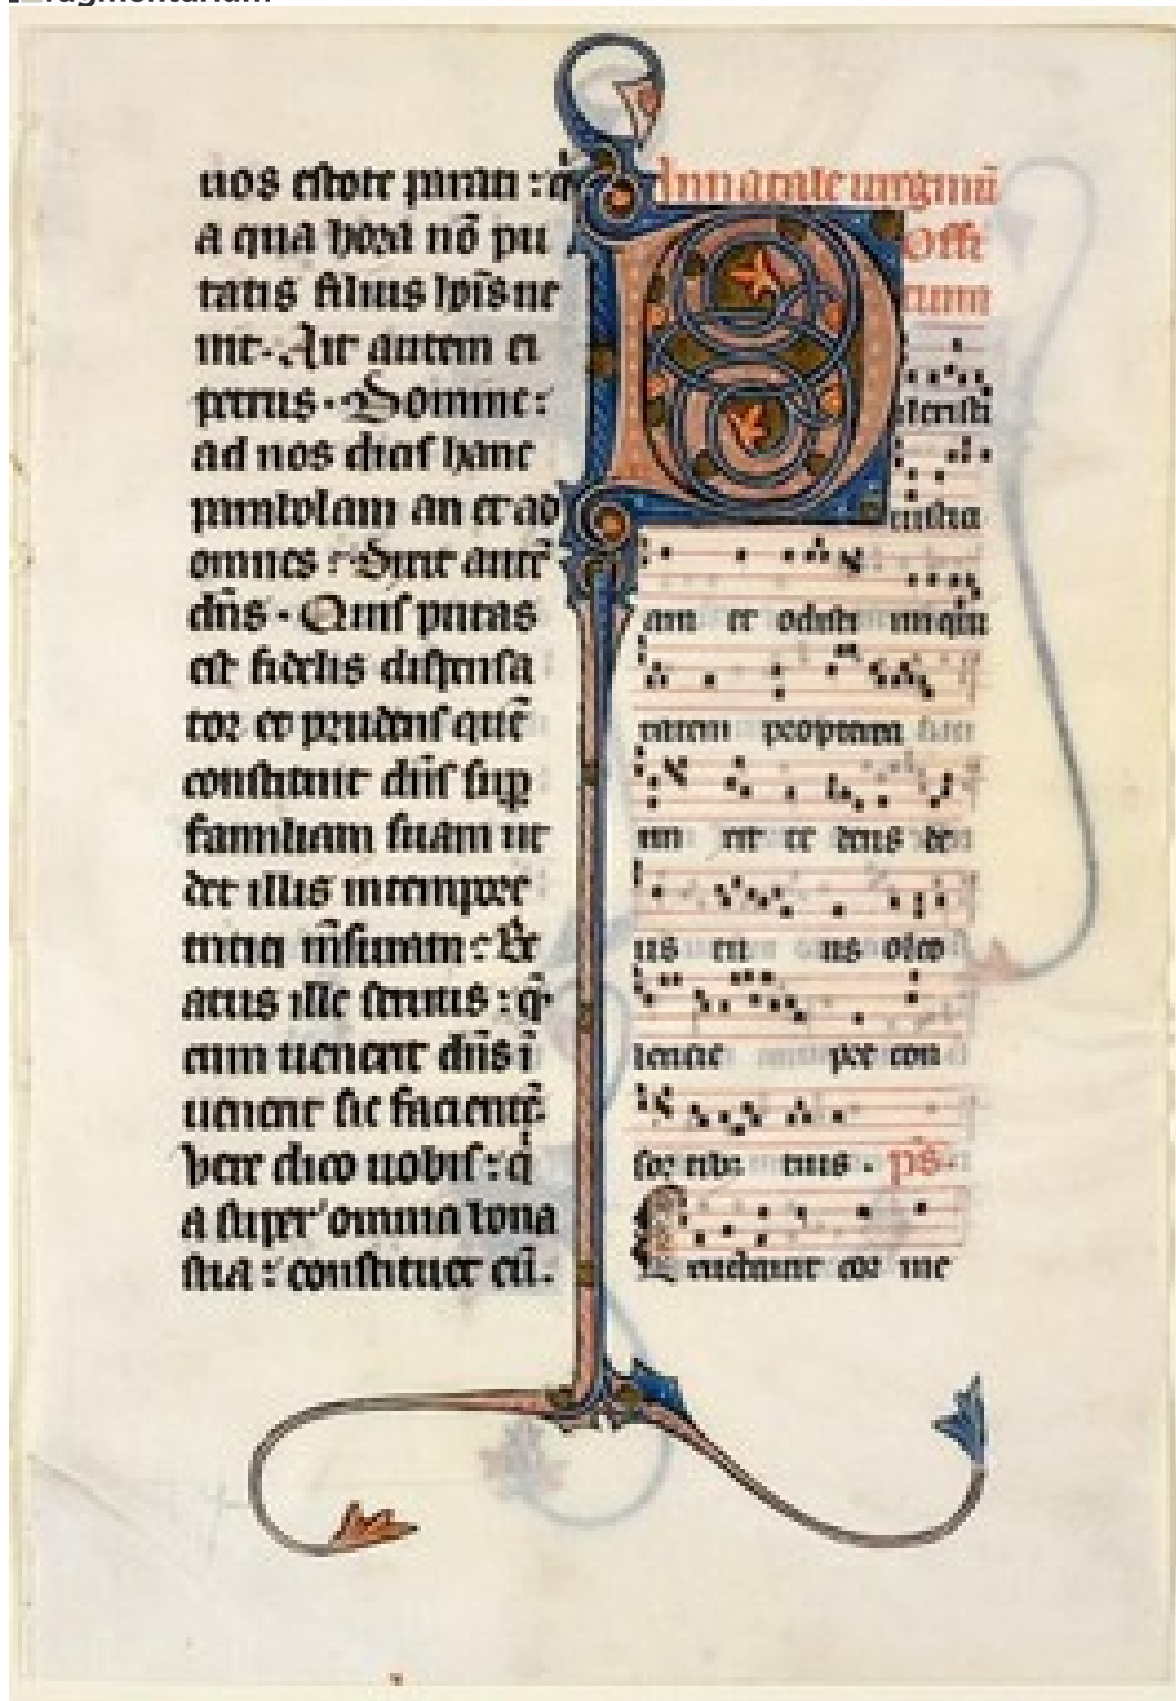 uos estote parati : q̇
a qua hora nō pu
tatis filius hoīs ue
niet. Ait autem ei
petrus. Domine :
ad nos dicis hanc
parabolam an et ad
omnes : Dixit autē
dn̄s. Quis putas
est fidelis dispensa
tor et prudens quē
constituit dn̄s sup
familiam suam ut
det illis in tempore
tritici m̄suram : Be
atus ille seruus : q̄
cum uenerit dn̄s ī
uenerit sic facientē
Vere dico uobis : q̇
a super omnia bona
sua : constituet eū.
In natale uirginū
Offi
cium
D ilexisti
iusticia
am et odisti iniqui
tatem propterea
un xit te deus de
us tu us oleo
leticie pre con
sor tibus tuis. ps̄.
E ructauit cor me